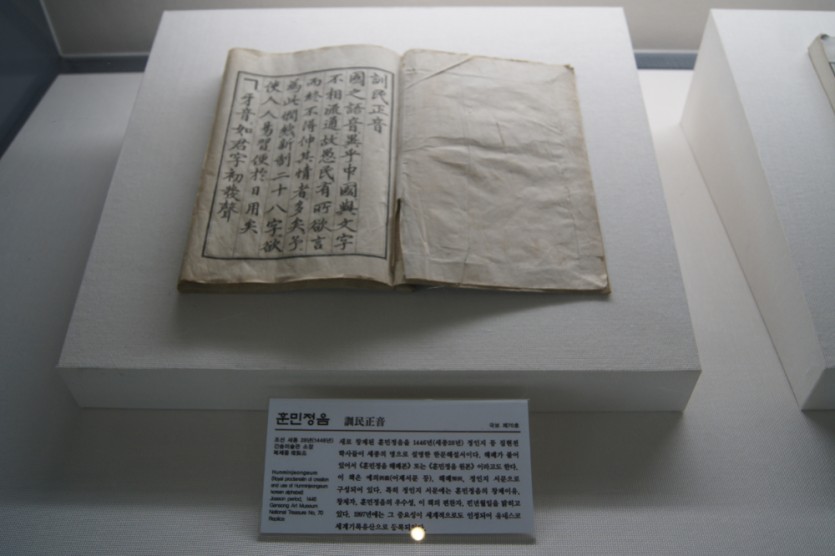 訓民正音
國之語音異乎中國與文字
不相流通故愚民有所欲言
而終不得伸其情者多矣予
為此憫然新制二十八字欲
使人人易習便於日用矣
ㄱ牙音如君字初發聲
훈민정음 訓民正音
국보 제70호
조선 세종 28년(1446년)
간송미술관 소장
복제품 複製品
Hunminjeongeum
(Royal proclamation of creation
and use of hunminjeongeum
korean alphabet)
Joseon period, 1446
Gansong Art Museum
National Treasure No. 70
Replica
새로 창제된 훈민정음을 1446년(세종28년) 정인지 등 집현전
학사들이 세종의 명으로 설명한 한문해설서이다. 해례가 붙어
있어서 《훈민정음 해례본》 또는 《훈민정음 원본》이라고도 한다.
이 책은 예의(어제서문 등), 해례, 정인지 서문으로
구성되어 있다. 특히 정인지 서문에는 훈민정음의 창제이유,
창제자, 훈민정음의 우수성, 이 책의 편찬자, 편년월일을 밝히고
있다. 1997년에는 그 중요성이 세계적으로도 인정되어 유네스코
세계기록유산으로 등록되었다.